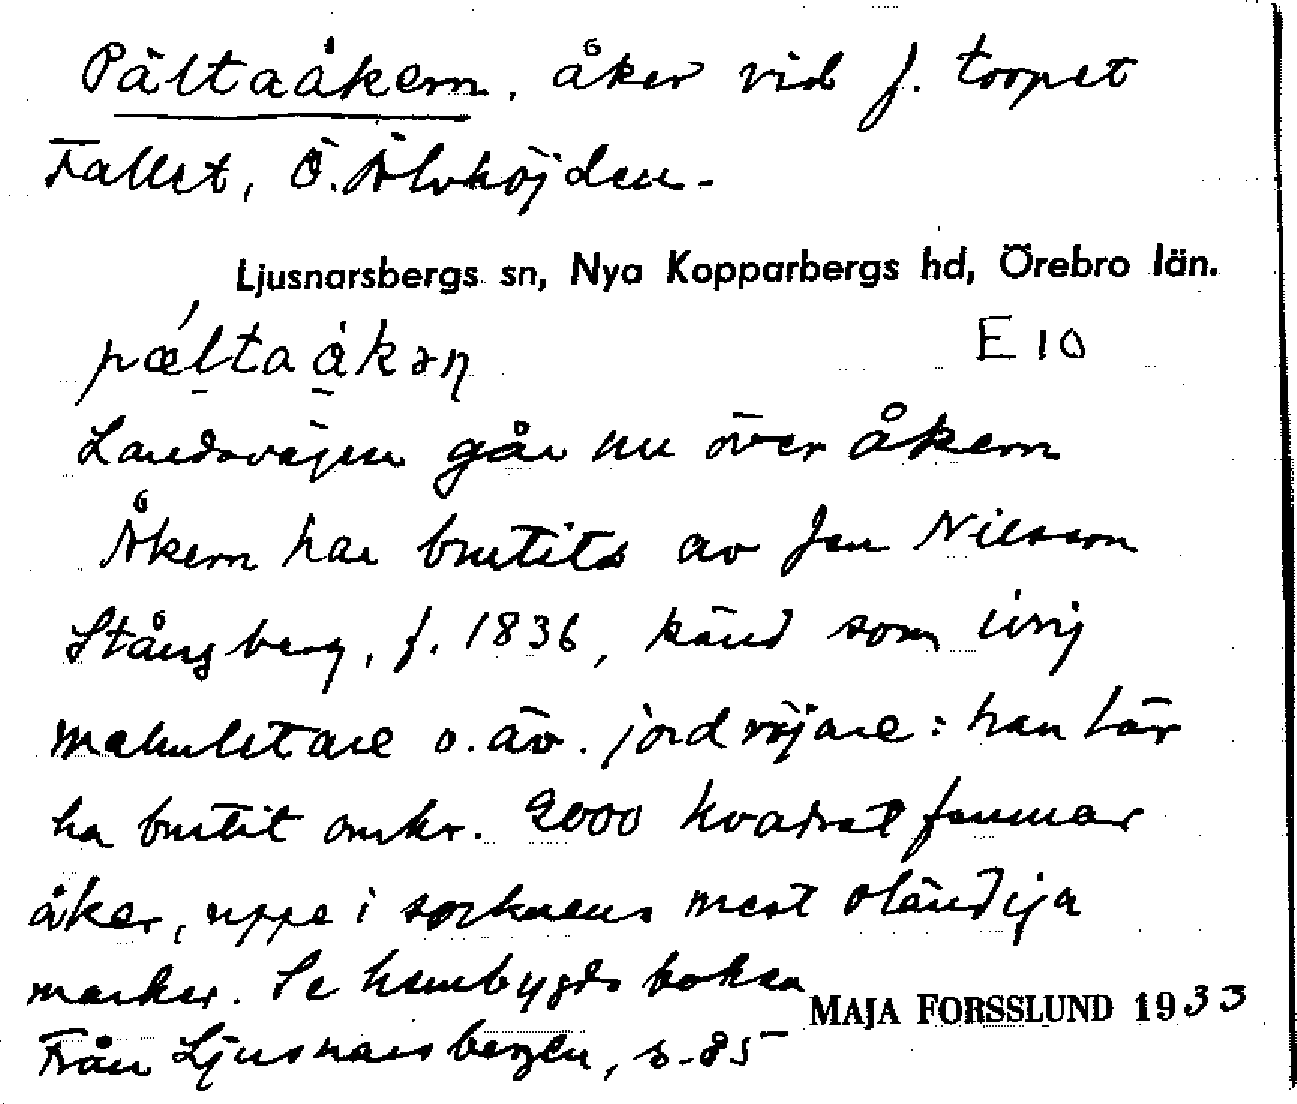 Pältaåkern, åker vid f. torpet
Fallet, Ö. Älvhöjden.
Ljusnarsbergs sn, Nya Kopparbergs hd, Örebro län.
pæ̀ltaåkəɳ
E 10
Landsvägen går nu över åkern
Åkern har brutits av Jan Nilsson
Stångberg, f. 1836, känd som ivrig
malmletare o. äv. jordröjare: han lär
ha brutit omkr. 2000 kvadratfamnar
åker, uppe i socknens mest oländiga
marker. Se hembygdsboken
MAJA FORSSLUND 1933
Från Ljusnarsbergen, s. 85